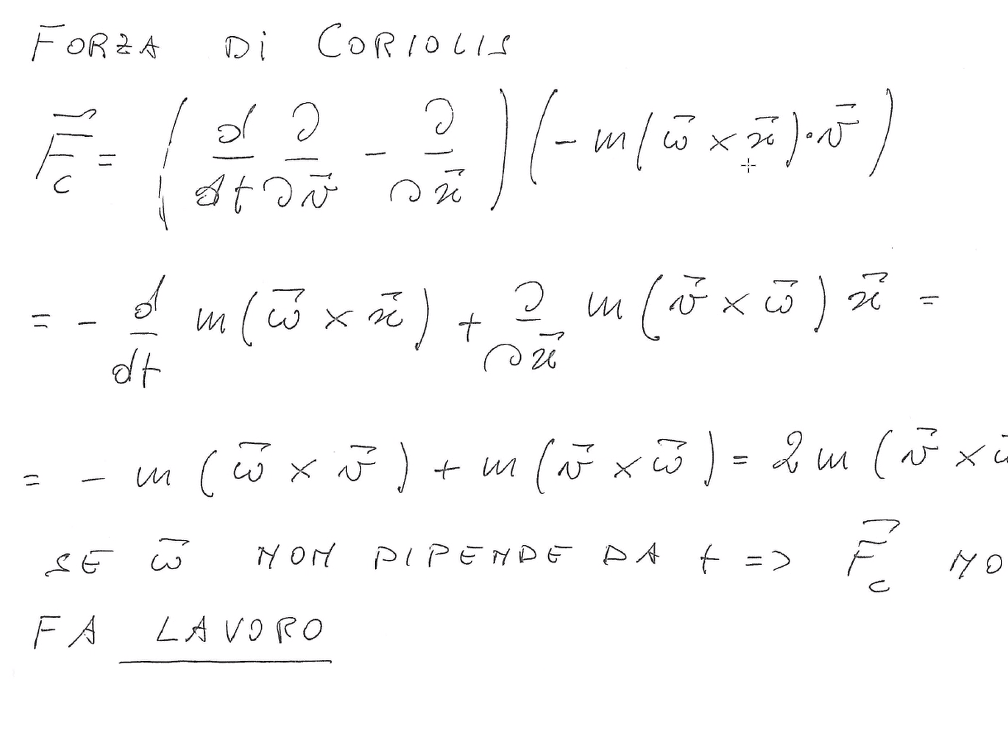 FORZA Di CORIOLIS
F⃗_c = (d/dt ∂/∂v⃗ - ∂/∂x⃗)(-m(ω⃗ × x⃗)·v⃗)
= - d/dt m(ω⃗ × x⃗) + ∂/∂x⃗ m(v⃗ × ω⃗) x⃗ =
= - m(ω⃗ × v⃗) + m(v⃗ × ω⃗) = 2m(v⃗ × ω
SE ω⃗ NON DIPENDE DA t => F⃗_c NO
FA LAVORO